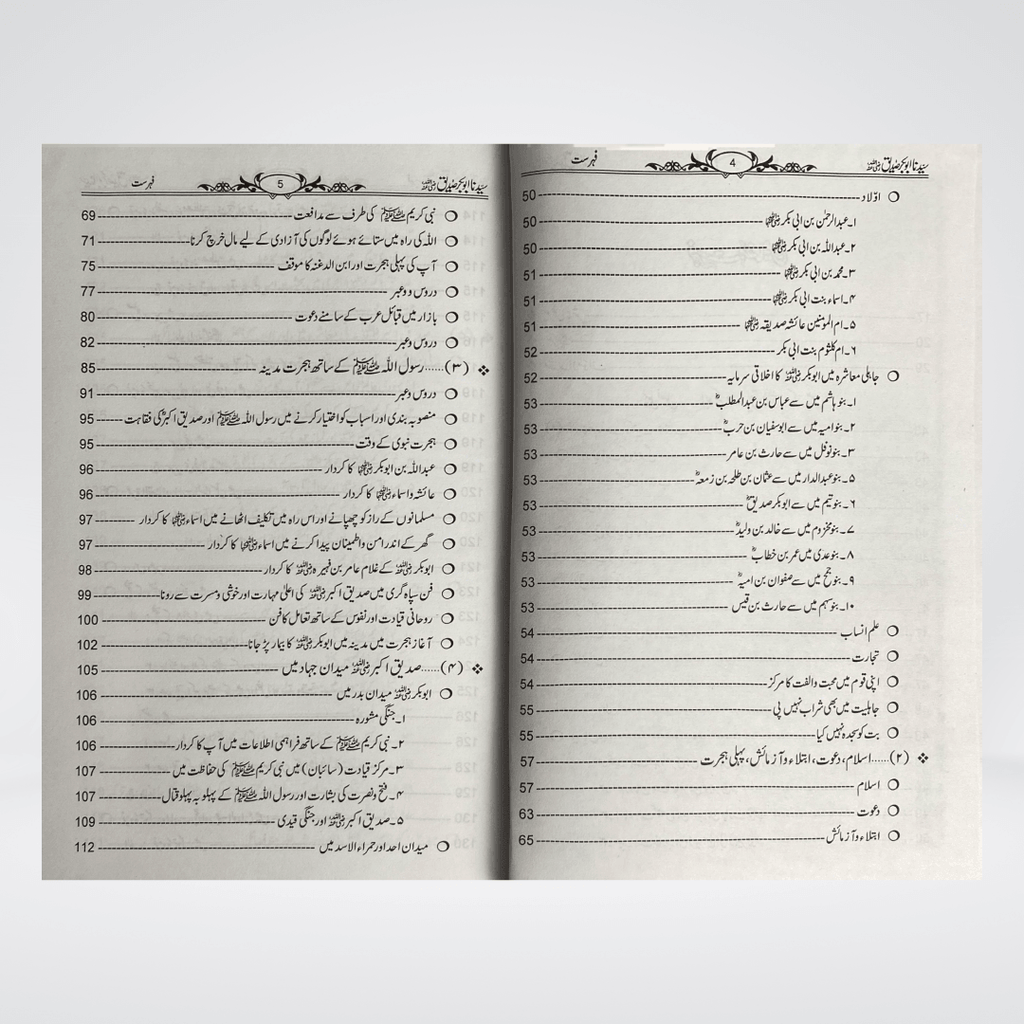 سیدنا ابوبکر صدیق رضی اللہ عنہ 4 فہرست
اوّلاد 50
۱۔ عبدالرحمٰن بن ابی بکر رضی اللہ عنہما 50
۲۔ عبداللہ بن ابی بکر رضی اللہ عنہما 50
۳۔ محمد بن ابی بکر رضی اللہ عنہما 51
۴۔ اسماء بنت ابی بکر رضی اللہ عنہما 51
۵۔ ام المومنین عائشہ صدیقہ رضی اللہ عنہا 51
۶۔ ام کلثوم بنت ابی بکر 52
جاہلی معاشرہ میں ابوبکر رضی اللہ عنہ کا اخلاقی سرمایہ 52
۱۔ بنو ہاشم میں سے عباس بن عبدالمطلبؓ 53
۲۔ بنو امیہ میں سے ابوسفیان بن حربؓ 53
۳۔ بنو نوفل میں سے حارث بن عامر 53
۵۔ بنو عبدالدار میں سے عثمان بن طلحہ بن زمعہؓ 53
۶۔ بنو تیم میں سے ابوبکر صدیقؓ 53
۷۔ بنو مخزوم میں سے خالد بن ولیدؓ 53
۸۔ بنو عدی میں عمر بن خطابؓ 53
۹۔ بنو جمح میں سے صفوان بن امیہؓ 53
۱۰۔ بنو سہم میں سے حارث بن قیس 53
علم انساب 54
تجارت 54
اپنی قوم میں محبت والفت کا مرکز 54
جاہلیت میں بھی شراب نہیں پی 55
بت کو سجدہ نہیں کیا 55
❖ (۲)...... اسلام، دعوت، ابتلاء و آزمائش، پہلی ہجرت 57
اسلام 57
دعوت 63
ابتلاء و آزمائش 65
سیدنا ابوبکر صدیق رضی اللہ عنہ 5 فہرست
نبی کریم ﷺ کی طرف سے مدافعت 69
اللہ کی راہ میں ستائے ہوئے لوگوں کی آزادی کے لیے مال خرچ کرنا 71
آپ کی پہلی ہجرت اور ابن الدغنہ کا موقف 75
دروس و وعبر 77
بازار میں قبائل عرب کے سامنے دعوت 80
دروس وعبر 82
❖ (۳)...... رسول اللہ ﷺ کے ساتھ ہجرت مدینہ 85
دروس وعبر 91
منصوبہ بندی اور اسباب کو اختیار کرنے میں رسول اللہ ﷺ اور صدیق اکبرؓ کی فقاہت 95
ہجرت نبوی کے وقت 95
عبداللہ بن ابوبکر رضی اللہ عنہما کا کردار 96
عائشہ و اسماء رضی اللہ عنہما کا کردار 96
مسلمانوں کے راز کو چھپانے اور اس راہ میں تکلیف اٹھانے میں اسماء رضی اللہ عنہا کا کردار 97
گھر کے اندر امن واطمینان پیدا کرنے میں اسماء رضی اللہ عنہا کا کردار 97
ابوبکر رضی اللہ عنہ کے غلام عامر بن فہیرہ رضی اللہ عنہ کا کردار 98
فن سپاہ گری میں صدیق اکبر رضی اللہ عنہ کی اعلیٰ مہارت اور خوشی ومسرت سے رونا 99
روحانی قیادت اور نفوس کے ساتھ تعامل کا فن 100
آغاز ہجرت میں مدینہ میں ابوبکر رضی اللہ عنہ کا بیمار پڑ جانا 102
❖ (۴)...... صدیق اکبر رضی اللہ عنہ میدان جہاد میں 105
ابوبکر رضی اللہ عنہ میدان بدر میں 106
۱۔ جنگی مشورہ 106
۲۔ نبی کریم ﷺ کے ساتھ فراہمی اطلاعات میں آپ کا کردار 106
۳۔ مرکز قیادت (سائبان) میں نبی کریم ﷺ کی حفاظت میں 107
۴۔ فتح ونصرت کی بشارت اور رسول اللہ ﷺ کے پہلو بہ پہلو قتال 107
۵۔ صدیق اکبر رضی اللہ عنہ اور جنگی قیدی 109
میدان احد اور حمراء الاسد میں 112